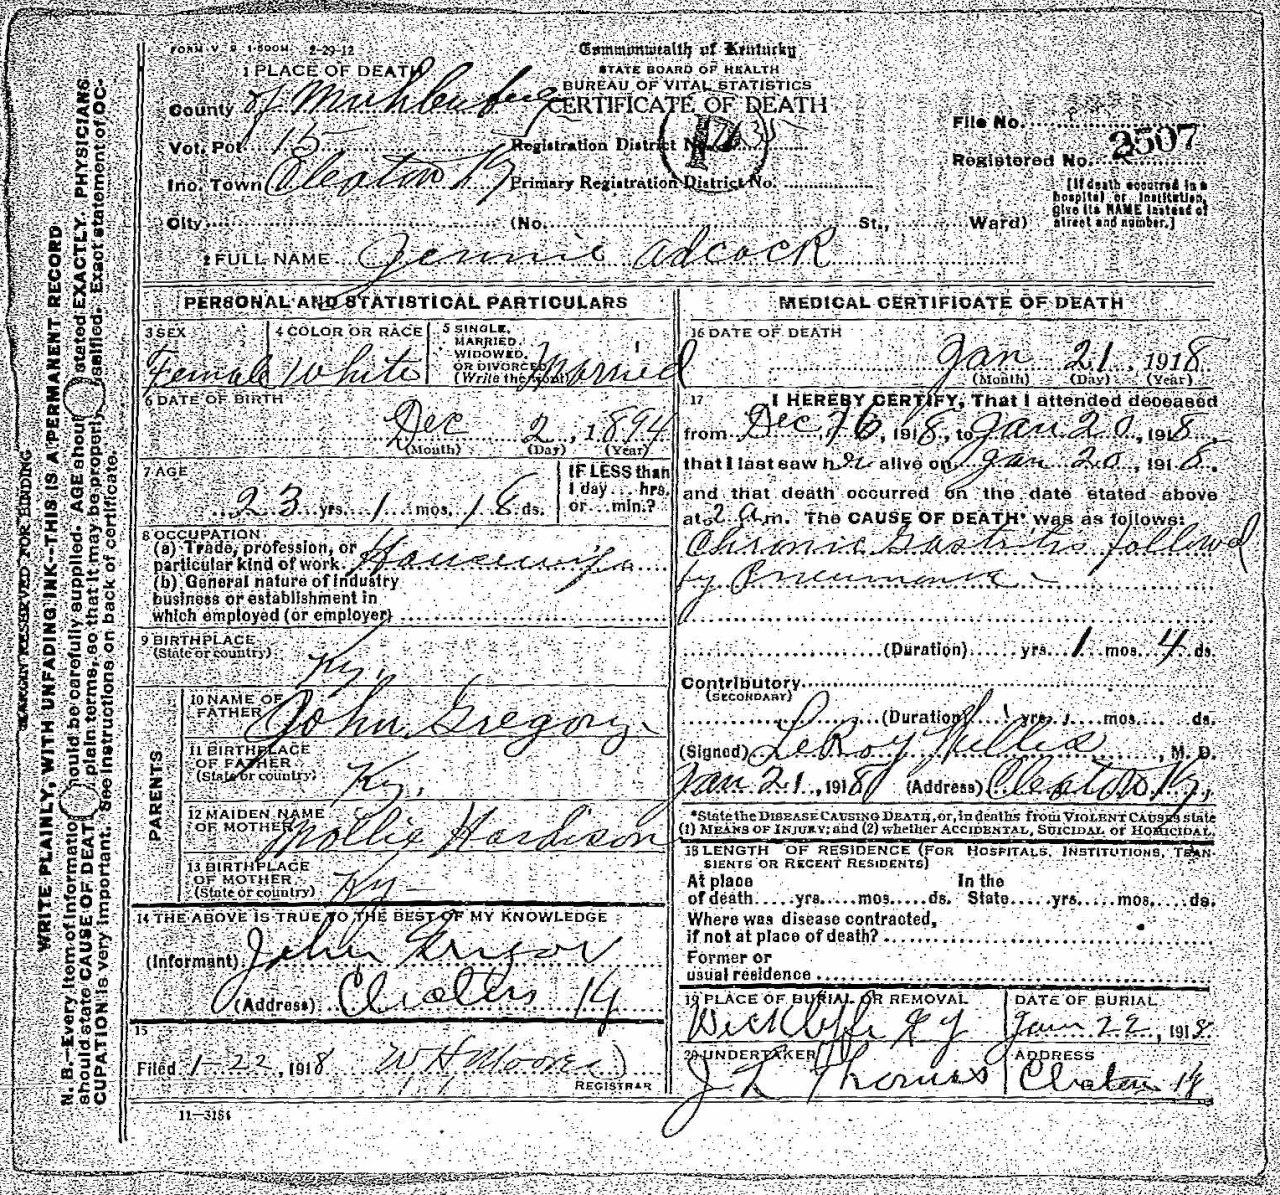 FORM V. S. 1-500M 2-29-12
Commonwealth of Kentucky
STATE BOARD OF HEALTH
BUREAU OF VITAL STATISTICS
CERTIFICATE OF DEATH
1 PLACE OF DEATH
County of Muhlenberg
Vot. Pct. 15 Registration District No.
Inc. Town Cleaton Ky Primary Registration District No.
City (No. St., Ward)
File No.
Registered No. 2507
[If death occurred in a
hospital or institution,
give its NAME instead of
street and number.]
2 FULL NAME Jennie Adcock
PERSONAL AND STATISTICAL PARTICULARS
3 SEX
Female
4 COLOR OR RACE
White
5 SINGLE,
MARRIED,
WIDOWED,
OR DIVORCED
(Write the word)
Married
6 DATE OF BIRTH
Dec 2, 1894
(Month) (Day) (Year)
7 AGE
23 yrs. 1 mos. 18 ds.
IF LESS than
1 day ... hrs.
or ... min.?
8 OCCUPATION
(a) Trade, profession, or
particular kind of work Housewife
(b) General nature of industry
business or establishment in
which employed (or employer)
9 BIRTHPLACE
(State or country)
Ky.
PARENTS
10 NAME OF
FATHER John Gregory
11 BIRTHPLACE
OF FATHER
(State or country) Ky.
12 MAIDEN NAME
OF MOTHER Mollie Hardison
13 BIRTHPLACE
OF MOTHER
(State or country) Ky
14 THE ABOVE IS TRUE TO THE BEST OF MY KNOWLEDGE
(Informant) John
(Address) Ky
15
Filed 1-22, 1918 W H Moore
REGISTRAR
11-3184
MEDICAL CERTIFICATE OF DEATH
16 DATE OF DEATH
Jan 21, 1918
(Month) (Day) (Year)
17 I HEREBY CERTIFY, That I attended deceased
from Dec 16, 1918, to Jan 20, 1918,
that I last saw her alive on Jan 20, 1918,
and that death occurred on the date stated above
at 2 a.m. The CAUSE OF DEATH* was as follows:
Chronic Gastritis followed
by Pneumonia
(Duration) yrs. 1 mos. 4 ds.
Contributory
(SECONDARY)
(Duration) yrs. mos. ds.
(Signed) LeRoy Willis, M. D.
Jan 21, 1918 (Address) Cleaton Ky.
*State the DISEASE CAUSING DEATH, or, in deaths from VIOLENT CAUSES state
(1) MEANS OF INJURY; and (2) whether ACCIDENTAL, SUICIDAL or HOMICIDAL.
18 LENGTH OF RESIDENCE (FOR HOSPITALS, INSTITUTIONS, TRAN-
SIENTS OR RECENT RESIDENTS)
At place In the
of death yrs. mos. ds. State yrs. mos. ds.
Where was disease contracted,
if not at place of death?
Former or
usual residence
19 PLACE OF BURIAL OR REMOVAL
Wickliffe Ky
DATE OF BURIAL
Jan 22, 1918
20 UNDERTAKER
J L Thomas
ADDRESS
Cleaton Ky
MARGIN RESERVED FOR BINDING
WRITE PLAINLY, WITH UNFADING INK--THIS IS A PERMANENT RECORD
N. B.--Every item of information should be carefully supplied. AGE should stated EXACTLY. PHYSICIANS
should state CAUSE OF DEATH plain terms, so that it may be properly classified. Exact statement of OC-
CUPATION is very important. See instructions on back of certificate.